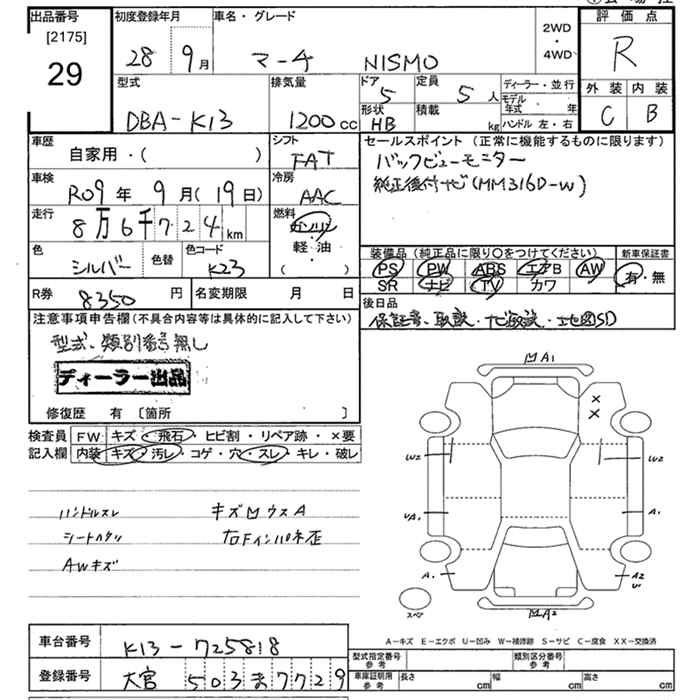 出品番号 初度登録年月 車名・グレード 評価点
[2175]
29
28年 9月 マーチ NISMO 2WD・4WD R
型式 排気量 ドア 定員 ディーラー・並行 外装 内装
DBA-K13 1200cc 5 5人 モデル年式・年
形状 積載 HB kg ハンドル 左・右 C B
車歴 シフト セールスポイント (正常に機能するものに限ります)
自家用・( ) FAT バックビューモニター
車検 冷房 純正後付ナビ(MM316D-W)
R09年 9月(19日) AAC
走行 燃料
8万6千724km ガソリン
軽・油
( )
色 色替 色コード 装備品 (純正品に限り○をつけてください) 新車保証書
シルバー K23 PS PW ABS エアB AW 有・無
SR ナビ TV カワ
R券 8350円 名変期限 月 日 後日品
保証書、取説、ナビ取説、地図SD
注意事項申告欄(不具合内容等は具体的に記入して下さい)
型式、類別番号無し
ディーラー出品
修復歴 有 〔箇所 〕
検査員 FW キズ・飛石・ヒビ割・リペア跡・×要
記入欄 内装 キズ・汚レ・コゲ・穴・スレ・キレ・破レ
ハンドルスレ キズ凹ウスA
シートヘタリ 右Fインパネ歪
AWキズ
凹A1
×
×
W2 W2
A1
A1 A2
スペア 凹A2
A-キズ E-エクボ U-凹み W-補修跡 S-サビ C-腐食 XX-交換済
車台番号 K13-725818 型式指定番号 参考 類別区分番号 参考
登録番号 大宮 503ま7729 車庫証明用 参考 長さ cm 幅 cm 高さ cm